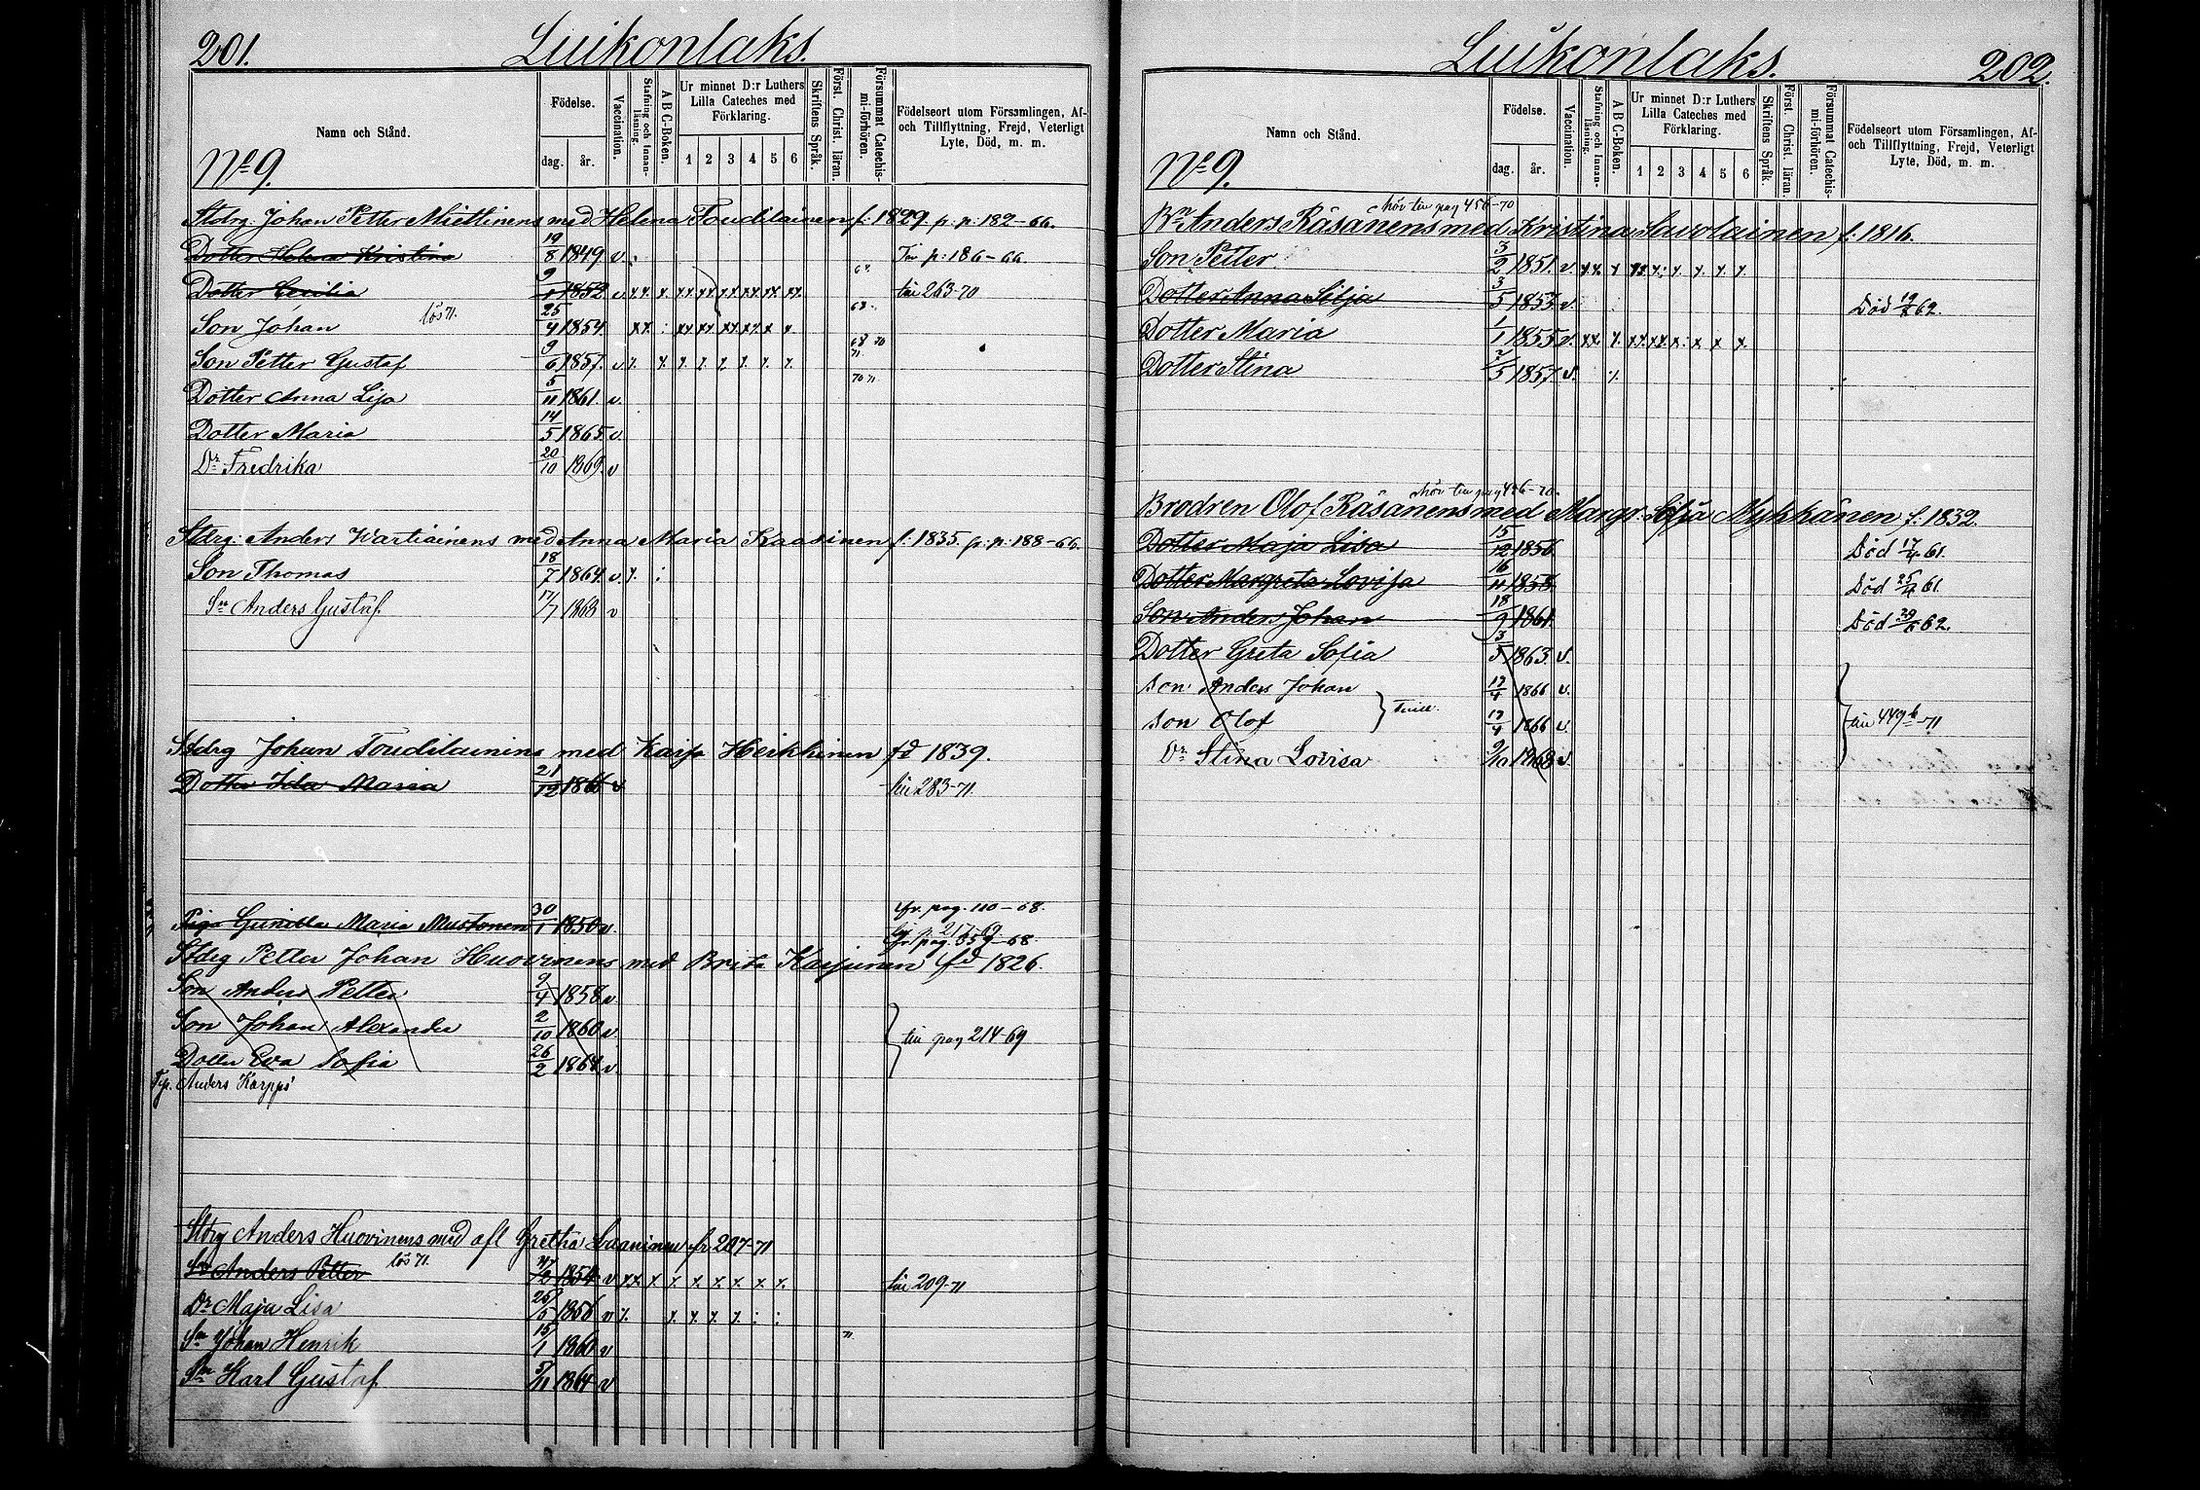 201. Luikonlaks.
Namn och Stånd. Födelse. dag. år. Vaccination. Stafning och Innanläsning. A B C-Boken. Ur minnet D:r Luthers Lilla Cateches med Förklaring. 1 2 3 4 5 6 Skriftens Språk. Först. Christ. läran. Försummat Catechismi-förhören. Födelseort utom Församlingen, Af- och Tillflyttning, Frejd, Veterligt Lyte, Död, m. m.
No 9.
Stdrg. Johan Petter Miettinens med Helena Toudilainen f. 1829. p. p. 182-66.
Dotter Helena Kristina 19/8 1849 v. Fr p: 186-66
Dotter Cecilia 9/1 1852 v. x x x. xx xx xx xx xx xx. till 263-70
Son Johan lös 71. 25/4 1854 xx : xx xx xx xx x x 68.
Son Petter Gustaf 9/6 1857. v x. x x x x x x x. 68 70 71.
Dotter Anna Lisa 5/11 1861. v. 70 71
Dotter Maria 14/5 1865. v
Dr Fredrika 20/10 1869. v
Stdrg: Anders Wartiainens med Anna Maria Kaasinen f. 1835. p. p: 188-66.
Son Thomas 18/7 1864 v. x. :
Sn Anders Gustaf 17/7 1868 v
Stdrg Johan Toudilainens med Kaisa Heikkinen fd 1839.
Dotter Ida Maria 21/12 1866 v till 283-71.
Piga Gunilla Maria Mustonen 30/1 1850 v. fr. pag. 110-68.
till p. 217-69.
fr pag. 359-68.
Stdrg Petter Johan Huovinens med Brita Karjunen fd 1826.
Son Anders Petter 9/4 1858 v
Son Johan Alexander 2/10 1860 v. till pag 214-69
Dotter Eva Sofia 26/2 1864 v
Anders Karppi
Stdrg Anders Huovinens med afl Gretha Laaninen fr 207-71
Sn Anders Petter lös 71. 1854 v xx x x x x x x x. till 209-71
Dr Maja Lisa 25/5 1856 v x. x x x x : :
Sn Johan Henrik 15/1 1860 v 71.
Sn Karl Gustaf 5/11 1864 v
Luikonlaks. 202.
Namn och Stånd. Födelse. dag. år. Vaccination. Stafning och Innanläsning. A B C-Boken. Ur minnet D:r Luthers Lilla Cateches med Förklaring. 1 2 3 4 5 6 Skriftens Språk. Först. Christ. läran. Försummat Catechismi-förhören. Födelseort utom Församlingen, Af- och Tillflyttning, Frejd, Veterligt Lyte, Död, m. m.
No 9.
hör till pag 456-70
Bn Anders Räsänens med Kristina Savolainen f. 1816.
Son Petter 3/2 1851. v. xx x xx x: x x x x.
Dotter Anna Silja 3/5 1853. v. Död 62.
Dotter Maria 1/1 1855 v. xx x. xx xx x: x x x.
Dotter Stina 7/5 1857. v. x
hör till pag 456-70.
Brodren Olof Räsänens med Margr. Sofia Mykkänen f. 1832.
Dotter Maja Lisa 15/12 1856 Död 17/4 61.
Dotter Margreta Lovisa 16/11 1858. Död 25/4 61.
Son Anders Johan 18/9 1861. Död 62.
Dotter Greta Sofia 3/5 1863. v.
son Anders Johan 17/4 1866 v.
Tvill.
son Olof 17/4 1866 v till 449 b-71
Dr Stina Lovisa 9/10 1868 v.